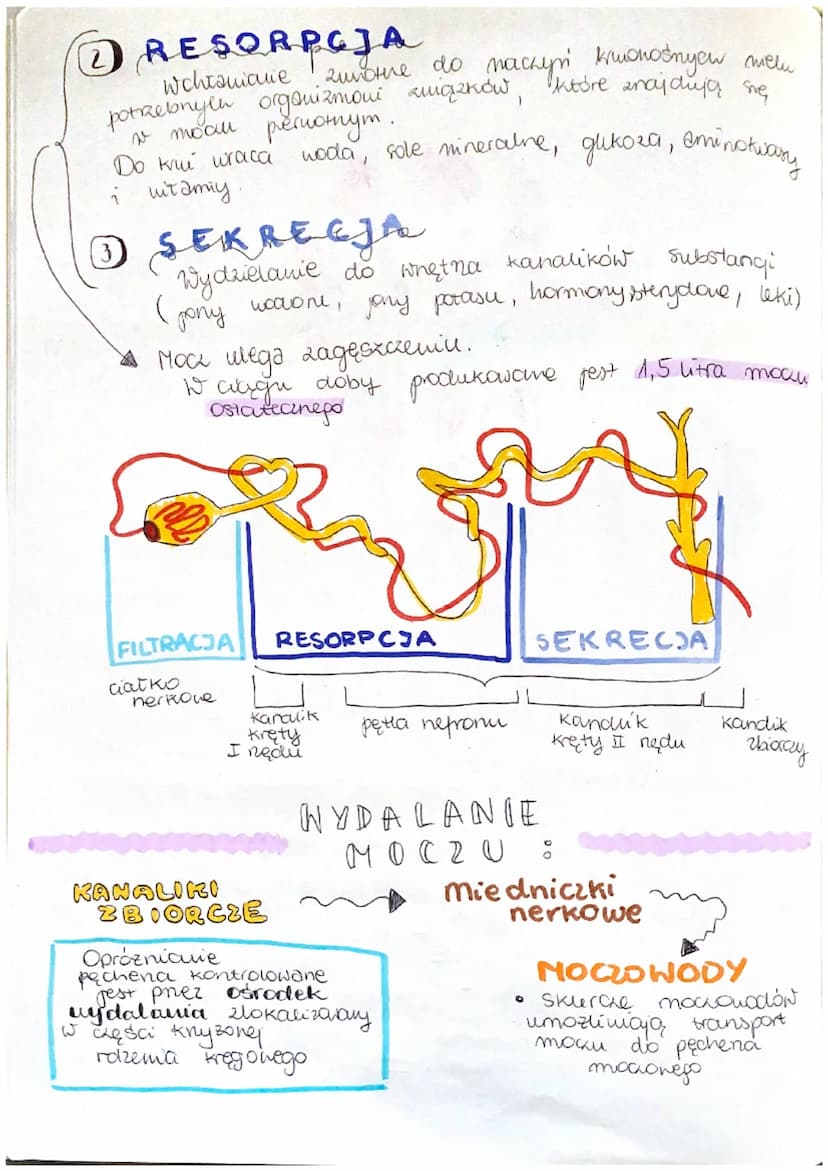 2 RESORPCJA
Wchłanianie zwrotne do naczyń krwionośnych wielu
potrzebnych organizmowi związków, które znajdują się
w moczu pierwotnym.
Do krwi wraca woda, sole mineralne, glukoza, aminokwasy
i witaminy.
3 SEKRECJA
Wydzielanie do wnętrza kanalików substancji
(jony wodoru, jony potasu, hormony sterydowe, leki)
Mocz ulega zagęszczeniu.
W ciągu doby produkowane jest 1,5 litra moczu
ostatecznego
FILTRACJA
RESORPCJA
SEKRECJA
ciałko
nerkowe
kanalik
kręty
I rzędu
pętla nefronu
kanalik
kręty II rzędu
kanalik
zbiorczy
WYDALANIE
MOCZU :
KANALIKI
ZBIORCZE
miedniczki
nerkowe
MOCZOWODY
• skurcze moczowodów
umożliwiają transport
moczu do pęcherza
moczowego
Opróżnianie
pęcherza kontrolowane
jest przez ośrodek
wydalania zlokalizowany
w części krzyżowej
rdzenia kręgowego